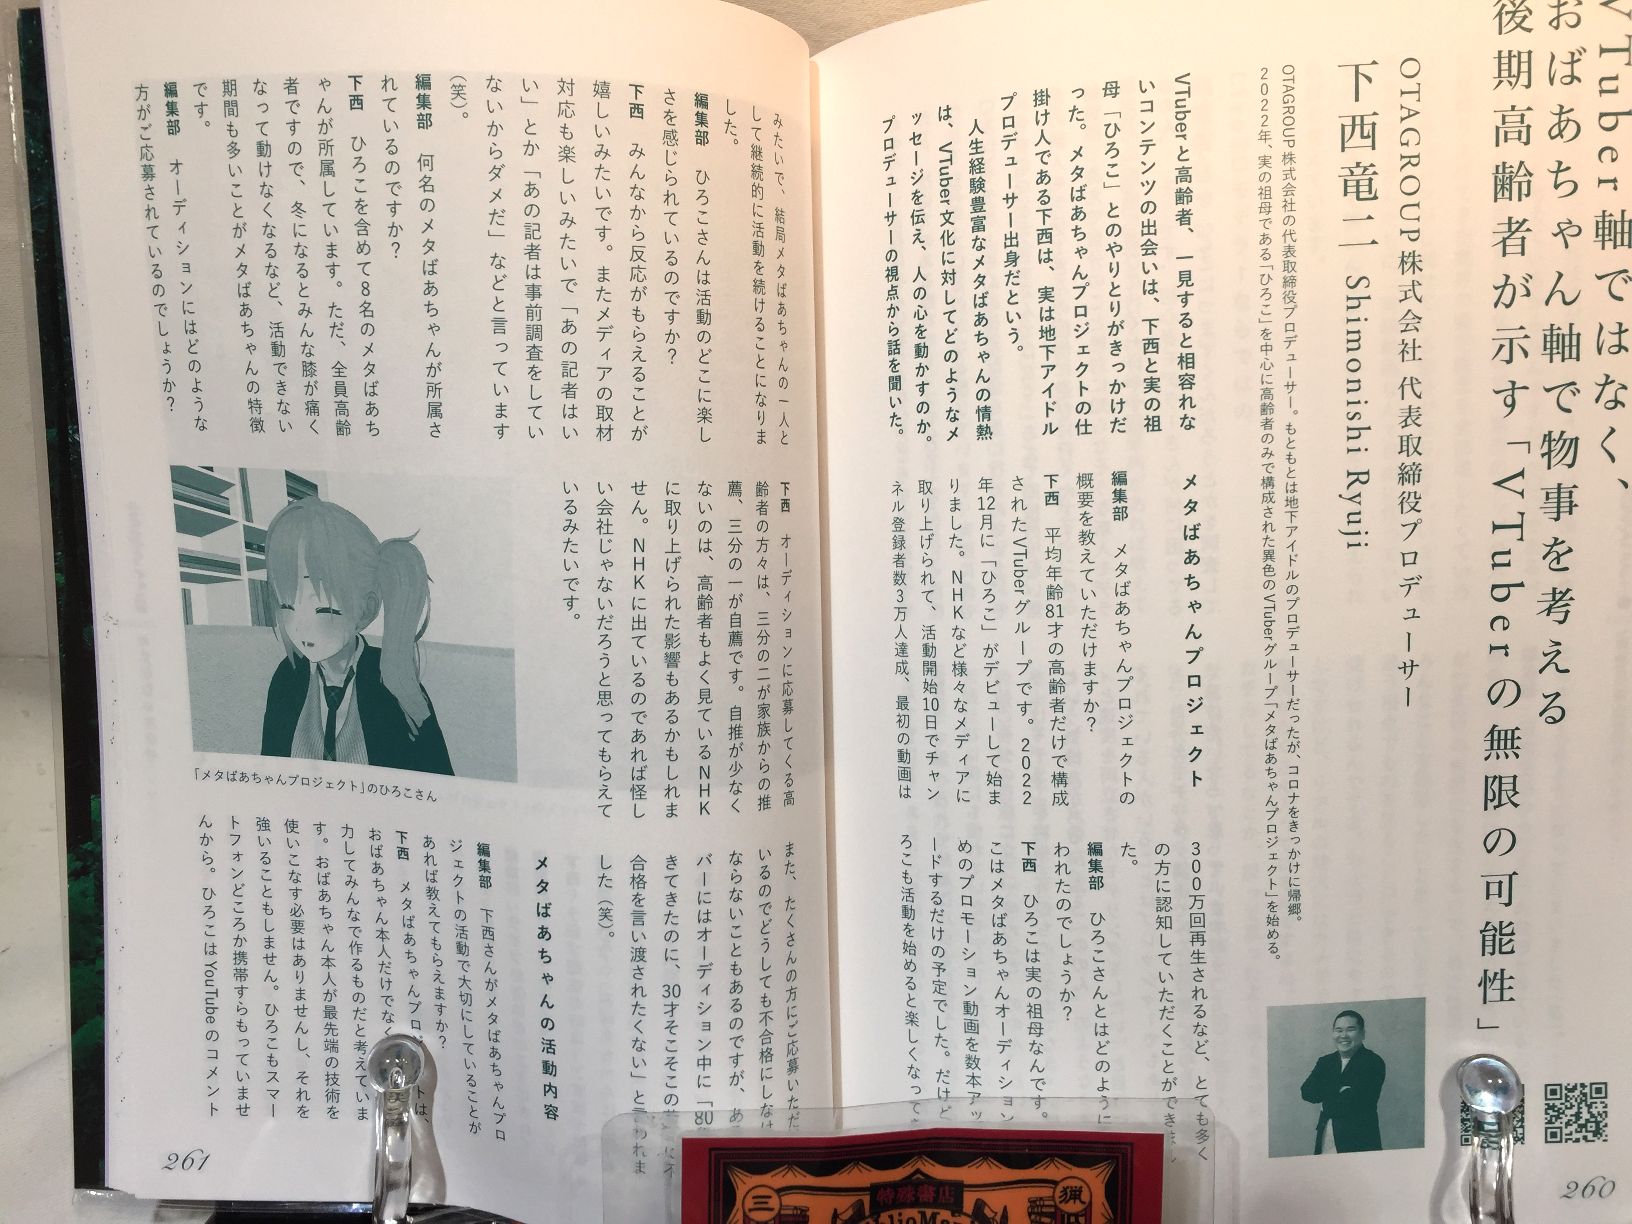 VTuber軸ではなく、
おばあちゃん軸で物事を考える
後期高齢者が示す「VTuberの無限の可能性」
OTAGROUP株式会社 代表取締役プロデューサー
下西竜二 Shimonishi Ryuji
OTAGROUP株式会社の代表取締役プロデューサー。もともとは地下アイドルのプロデューサーだったが、コロナをきっかけに帰郷。
2022年、実の祖母である「ひろこ」を中心に高齢者のみで構成された異色のVTuberグループ「メタばあちゃんプロジェクト」を始める。
VTuberと高齢者、一見すると相容れな
いコンテンツの出会いは、下西と実の祖
母「ひろこ」とのやりとりがきっかけだ
った。メタばあちゃんプロジェクトの仕
掛け人である下西は、実は地下アイドル
プロデューサー出身だという。
人生経験豊富なメタばあちゃんの情熱
は、VTuber文化に対してどのようなメ
ッセージを伝え、人の心を動かすのか。
プロデューサーの視点から話を聞いた。
メタばあちゃんプロジェクト
編集部 メタばあちゃんプロジェクトの
概要を教えていただけますか?
下西 平均年齢81才の高齢者だけで構成
されたVTuberグループです。2022
年12月に「ひろこ」がデビューして始ま
りました。NHKなど様々なメディアに
取り上げられて、活動開始10日でチャン
ネル登録者数3万人達成、最初の動画は
300万回再生されるなど、とても多く
の方に認知していただくことができまし
た。
編集部 ひろこさんとはどのように
われたのでしょうか?
下西 ひろこは実の祖母なんです。
こはメタばあちゃんオーディション
めのプロモーション動画を数本アッ
ードするだけの予定でした。だけど
ろこも活動を始めると楽しくなって
260
みたいで、結局メタばあちゃんの一人と
して継続的に活動を続けることになりま
した。
編集部 ひろこさんは活動のどこに楽し
さを感じられているのですか?
下西 みんなから反応がもらえることが
嬉しいみたいです。またメディアの取材
対応も楽しいみたいで「あの記者はい
い」とか「あの記者は事前調査をしてい
ないからダメだ」などと言っています
(笑)。
編集部 何名のメタばあちゃんが所属さ
れているのですか?
下西 ひろこを含めて8名のメタばあち
ゃんが所属しています。ただ、全員高齢
者ですので、冬になるとみんな膝が痛く
なって動けなくなるなど、活動できない
期間も多いことがメタばあちゃんの特徴
です。
編集部 オーディションにはどのような
方がご応募されているのでしょうか?
下西 オーディションに応募してくる高
齢者の方々は、三分の二が家族からの推
薦、三分の一が自薦です。自推が少なく
ないのは、高齢者もよく見ているNHK
に取り上げられた影響もあるかもしれま
せん。NHKに出ているのであれば怪し
い会社じゃないだろうと思ってもらえて
いるみたいです。
「メタばあちゃんプロジェクト」のひろこさん
また、たくさんの方にご応募いただ
いるのでどうしても不合格にしなけ
ならないこともあるのですが、あ
バーにはオーディション中に「80
きてきたのに、30才そこそこの
合格を言い渡されたくない」と言われま
した(笑)。
メタばあちゃんの活動内容
編集部 下西さんがメタばあちゃんプロ
ジェクトの活動で大切にしていることが
あれば教えてもらえますか?
下西 メタばあちゃんプロ トは、
おばあちゃん本人だけでなく
力してみんなで作るものだと考えていま
す。おばあちゃん本人が最先端の技術を
使いこなす必要はありませんし、それを
強いることもしません。ひろこもスマー
トフォンどころか携帯すらもっていませ
んから。ひろこはYouTubeのコメント
261
特殊書店
三
猟